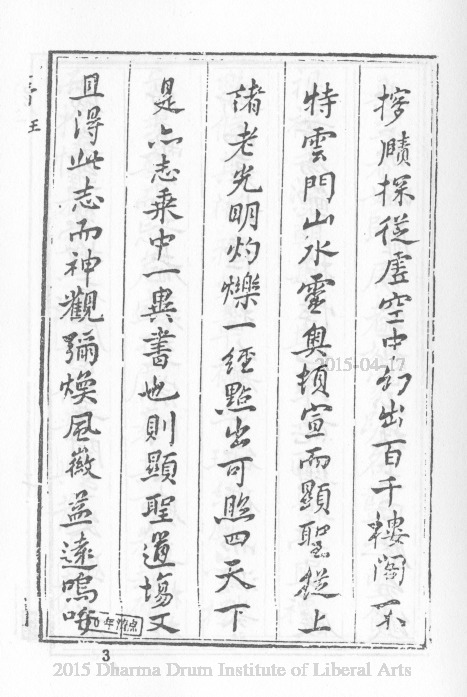 搜賾探從虛空中幻出百千樓閣不
特雲門山水靈奥頓宣而顯聖從上
諸老光明灼爍一經點出可照四天下
是亦志乗中一異書也則顯聖道場又
且得此志而神觀彌煥風徽益遠嗚呼
3
2015-04-17
2015 Dharma Drum Institute of Liberal Arts